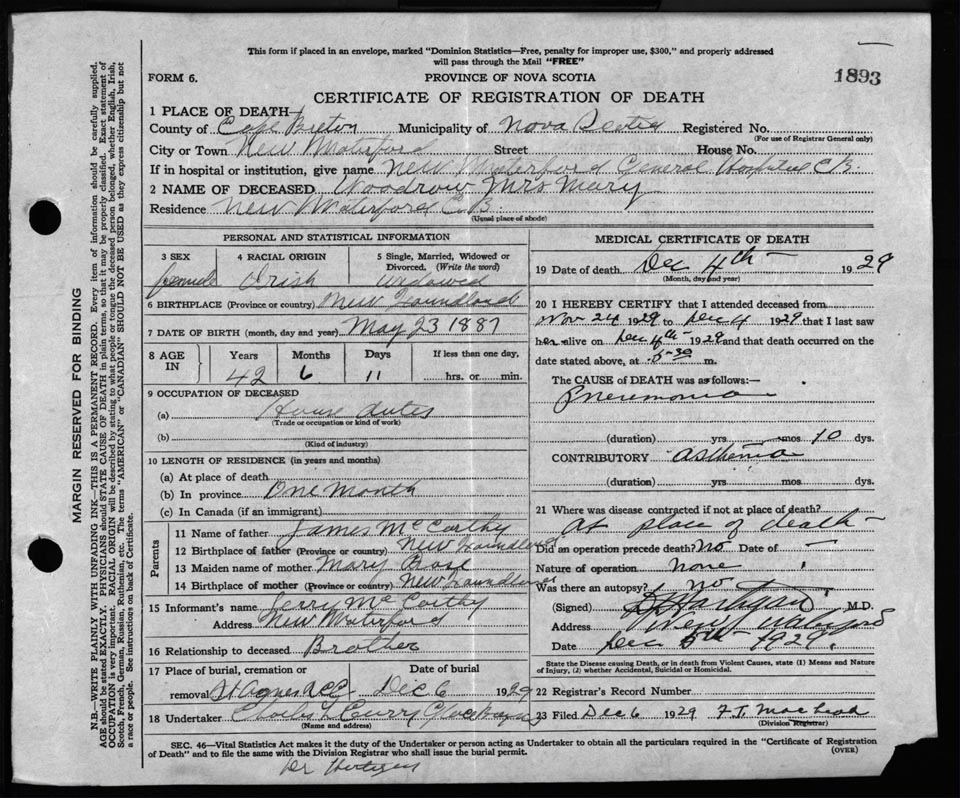 This form if placed in an envelope, marked "Dominion Statistics—Free, penalty for improper use, $300," and properly addressed
will pass through the Mail "FREE"
FORM 6.
PROVINCE OF NOVA SCOTIA
1893
CERTIFICATE OF REGISTRATION OF DEATH
1 PLACE OF DEATH—
County of Cape Breton Municipality of Nova Scotia Registered No.
(For use of Registrar General only)
City or Town New Waterford Street House No.
If in hospital or institution, give name New Waterford General Hospital C B.
2 NAME OF DECEASED Woodrow Mrs Mary
Residence New Waterford C. B.
(Usual place of abode)
PERSONAL AND STATISTICAL INFORMATION
3 SEX 4 RACIAL ORIGIN 5 Single, Married, Widowed or
Divorced. (Write the word)
Female Irish Widowed
6 BIRTHPLACE (Province or country) New Foundland
7 DATE OF BIRTH (month, day and year) May 23 1887
8 AGE IN Years Months Days If less than one day,
42 6 11 hrs. or min.
9 OCCUPATION OF DECEASED
(a) House duties
(Trade or occupation or kind of work)
(b)
(Kind of industry)
10 LENGTH OF RESIDENCE (in years and months)
(a) At place of death
(b) In province One Month
(c) In Canada (if an immigrant)
Parents
11 Name of father James McCarthy
12 Birthplace of father (Province or country) New Foundland
13 Maiden name of mother Mary
14 Birthplace of mother (Province or country) New Foundland
15 Informant's name Jerry McCarthy
Address New Waterford
16 Relationship to deceased Brother
17 Place of burial, cremation or Date of burial
removal St Agnes Dec 6 1929
18 Undertaker Charles Curry Glace Bay
(Name and address)
MEDICAL CERTIFICATE OF DEATH
19 Date of death Dec 4th 1929
(Month, day and year)
20 I HEREBY CERTIFY that I attended deceased from
Nov 24 1929 to Dec 4 1929 that I last saw
her alive on Dec 4th 1929 and that death occurred on the
date stated above, at 5-30 m.
The CAUSE of DEATH was as follows:—
Pneumonia
(duration) yrs mos 10 dys.
CONTRIBUTORY asthma
(duration) yrs mos dys.
21 Where was disease contracted if not at place of death?
At place of death
Did an operation precede death? No Date of —
Nature of operation none
Was there an autopsy? No
(Signed) M.D.
Address New Waterford
Date Dec 5th 1929
State the Disease causing Death, or in death from Violent Causes, state (1) Means and Nature
of Injury, (2) whether Accidental, Suicidal or Homicidal.
22 Registrar's Record Number
23 Filed Dec 6 1929 F. J. MacLeod
(Division Registrar)
SEC. 46—Vital Statistics Act makes it the duty of the Undertaker or person acting as Undertaker to obtain all the particulars required in the "Certificate of Registration
of Death" and to file the same with the Division Registrar who shall issue the burial permit.
(OVER)
MARGIN RESERVED FOR BINDING
N.B.—WRITE PLAINLY WITH UNFADING INK—THIS IS A PERMANENT RECORD. Every item of information should be carefully supplied.
AGE should be stated EXACTLY. PHYSICIANS should STATE CAUSE OF DEATH in plain terms, so that it may be properly classified. Exact statement of
OCCUPATION is very important. RACIAL ORIGIN will be described by stating to what people or tongue the deceased person belonged, whether English, Irish,
Scotch, French, German, Russian, Ruthenian, etc. The terms "AMERICAN" or "CANADIAN" SHOULD NOT BE USED as they express citizenship but not
a race or people. See instructions on back of Certificate.